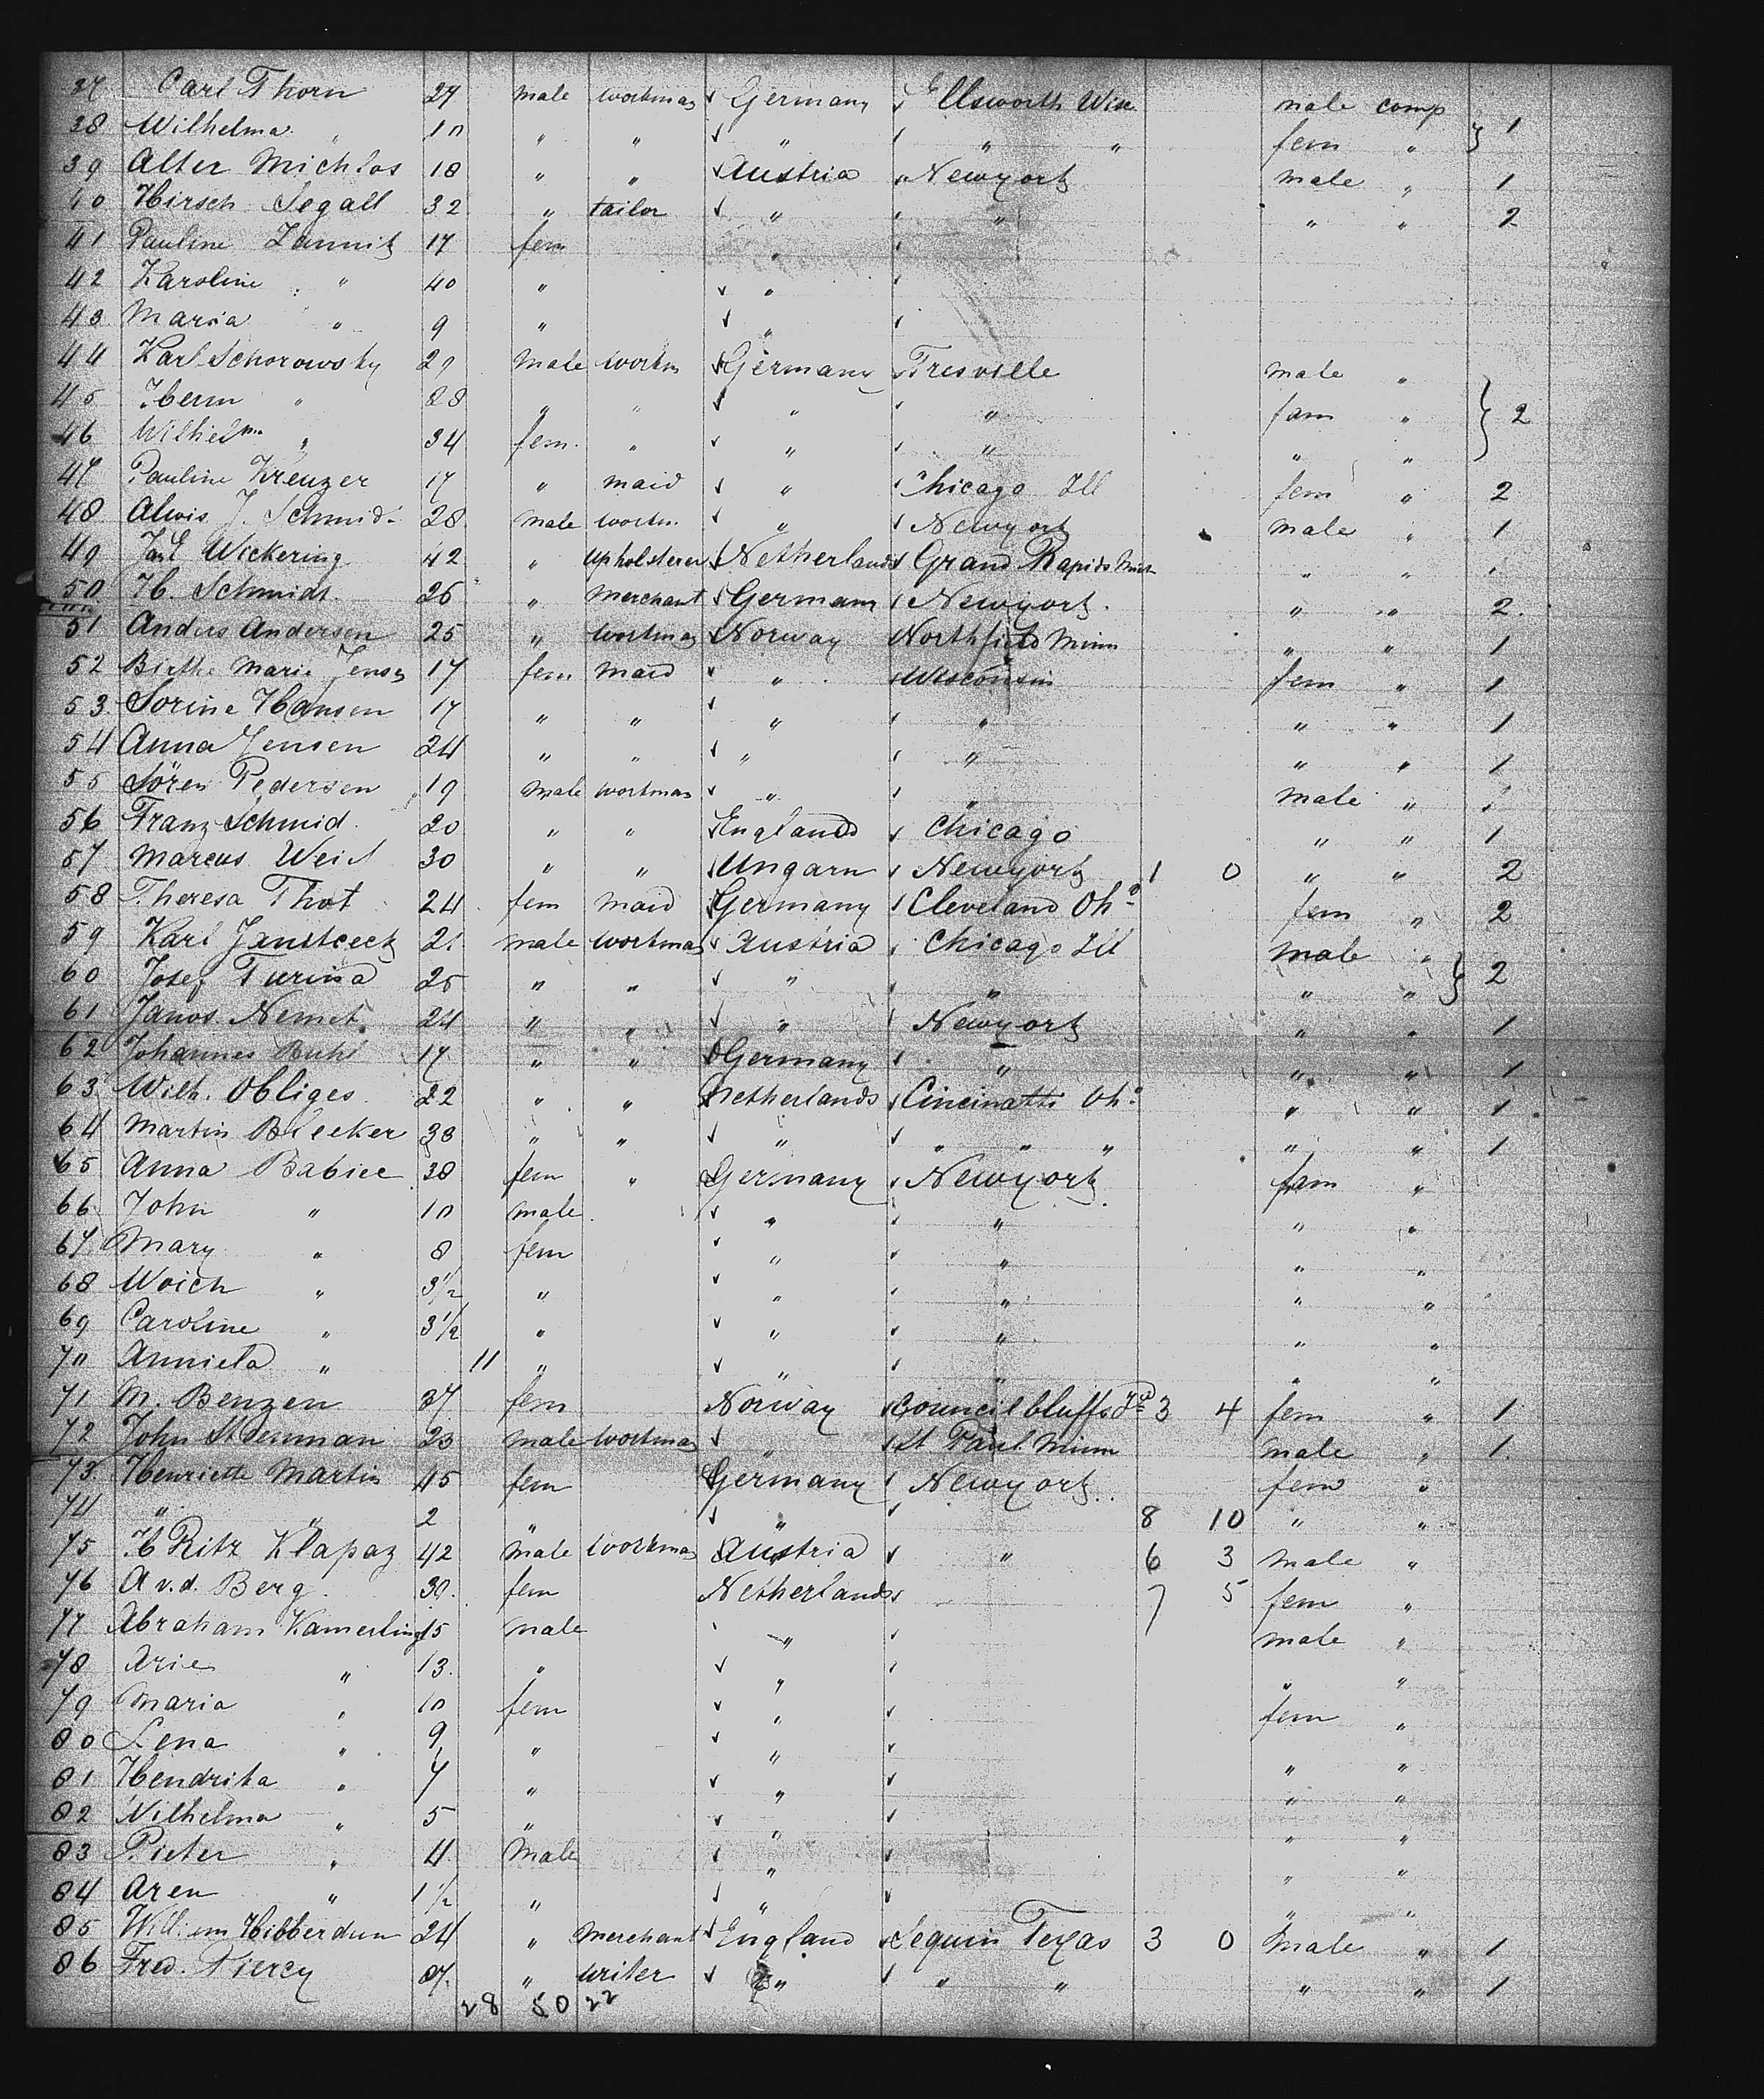 37 Carl Thorn 27 male workman Germany Ellsworth Wisc male comp
38 Wilhelma " 10 " " " " " fem " } 1
39 Alter Michlos 18 " " Austria Newyork male " 1
40 Hirsch Segall 32 " tailor " " " " 2
41 Pauline 17 fem "
42 Karoline " 40 " "
43 Maria " 9 " "
44 Karl Schorowsky 29 male workm Germany Tresville male "
45 Herm " 28 " " " " fam " } 2
46 Wilhelm " 34 fem. " " " " "
47 Pauline Kreuzer 17 " maid " Chicago Ill fem " 2
48 Alwis J. Schmid 28 male workm. " Newyork male " 1
49 Karl Wickering 42 " upholsterer Netherlands Grand Rapids Mich " "
50 H. Schmidt 26 " merchant Germany Newyork. " " 2.
51 Anders Andersen 25 " workman Norway Northfield Minn " " 1
52 Birthe Marie Jensen 17 fem maid " Wisconsin fem " 1
53 Sorine Hansen 17 " " " " " " 1
54 Anna Jensen 24 " " " " " " 1
55 Sören Pedersen 19 male workman " " male " 1
56 Franz Schmid 20 " " England Chicago " " 1
57 Marcus Weisl 30 " " Ungarn Newyork 1 0 " " 2
58 Theresa Thot 24 fem maid Germany Cleveland Oho fem " 2
59 Karl 21 male workman Austria Chicago Ill male "
60 Josef Turina 25 " " " " " " } 2
61 Janos Nemet 24 " " " Newyork " " 1
62 Johannes Buhl 17 " " Germany " " " 1
63 Wilh. Obliges 22 " " Netherlands Cincinatti Oho " " 1
64 Martin Bleeker 38 " " " " " " " " 1
65 Anna Babiec 38 fem " Germany Newyork fam "
66 John " 10 male " " " "
67 Mary " 8 fem " " " "
68 Woich " 3½ " " " " "
69 Caroline " 3½ " " " " "
70 Annieta " 11 " " " " "
71 M. Benzen 37 fem Norway Council bluffs Ja 3 4 fem " 1
72 John Steenman 23 male workman " St Paul Minn male " 1.
73 Henriette Martin 45 fem Germany Newyork fem "
74 " " 2 " " 8 10 " "
75 H Ritz Klapaz 42 male workman Austria " 6 3 male "
76 A v.d. Berg 30. fem Netherlands 7 5 fem "
77 Abraham Kamerling 15 male " male "
78 Arie " 13. " " " "
79 Maria " 10 fem " fem "
80 Lena " 9 " "
81 Hendrika " 7 " " " "
82 Wilhelma " 5 " " " "
83 Pieter " 4 male " " "
84 Aren " 1½ " " " "
85 Willem Hibberdun 24 " merchant England Sequin Texas 3 0 male " 1
86 Fred. Piercy " writer " " " " " 1
28 50 22